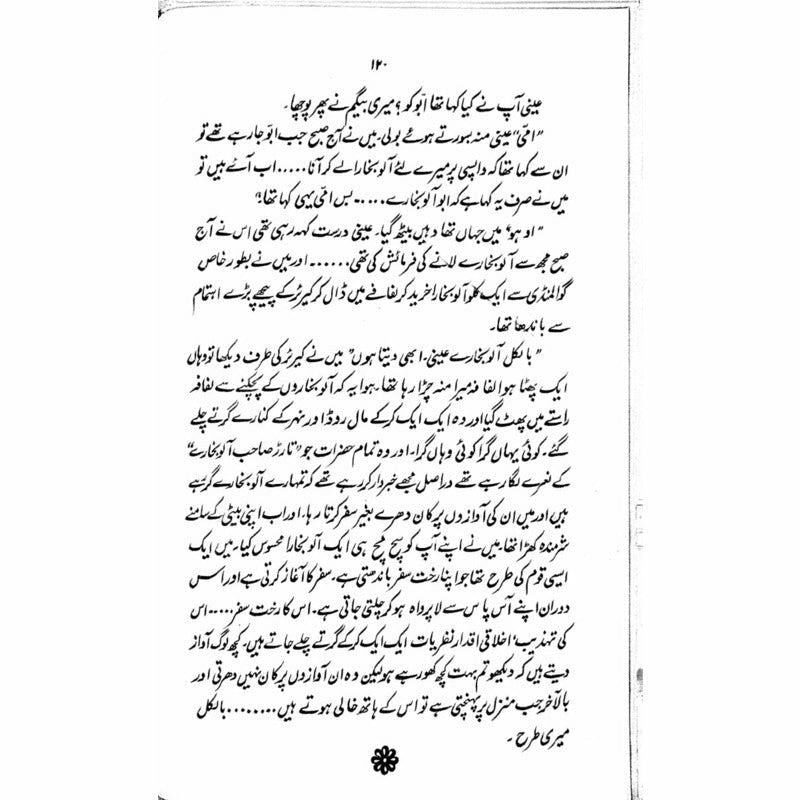 ۱۲۰
عینی آپ نے کیا کہا تھا ابّو کو ؟ میری بیگم نے پھر پوچھا۔
"امّی" عینی منہ بسورتے ہوئے بولی۔ میں نے آج صبح جب ابّو جا رہے تھے تو
ان سے کہا تھا کہ واپسی پر میرے لئے آلو بخارا لے کر آنا ..... اب آئے ہیں تو
میں نے صرف یہ کہا ہے کہ ابو آلو بخارے ..... بس امّی یہی کہا تھا؛"
"اوہو" میں جہاں تھا وہیں بیٹھ گیا۔ عینی درست کہہ رہی تھی اس نے آج
صبح مجھ سے آلو بخارے لانے کی فرمائش کی تھی ...... اور میں نے بطور خاص
گوالمنڈی سے ایک کلو آلو بخارا خرید کر لفافے میں ڈال کر کیرئر کے پیچھے بڑے اہتمام
سے باندھا تھا۔
"بالکل آلو بخارے عینی۔ ابھی دیتا ہوں" میں نے کیرئر کی طرف دیکھا تو وہاں
ایک پھٹا ہوا لفافہ میرا منہ چڑا رہا تھا۔ ہوا یہ کہ آلو بخاروں کے پچکنے سے لفافہ
راستے میں پھٹ گیا اور وہ ایک ایک کر کے مال روڈ اور نہر کے کنارے گرتے چلے
گئے۔ کوئی یہاں گرا کوئی وہاں گرا۔ اور وہ تمام حضرات جو "تارڑ صاحب آلو بخارے"
کے نعرے لگا رہے تھے دراصل مجھے خبردار کر رہے تھے کہ تمہارے آلو بخارے گر رہے
ہیں اور میں ان کی آوازوں پر کان دھرے بغیر سفر کرتا رہا۔ اور اب اپنی بیٹی کے سامنے
شرمندہ کھڑا تھا۔ میں نے اپنے آپ کو سچ مچ ہی ایک آلو بخارا محسوس کیا۔ میں ایک
ایسی قوم کی طرح تھا جو اپنا رخت سفر باندھتی ہے۔ سفر کا آغاز کرتی ہے اور اس
دوران اپنے آس پاس سے لاپرواہ ہو کر چلتی جاتی ہے۔ اس کا رخت سفر ..... اس
کی تہذیب' اخلاقی اقدار نظریات ایک ایک کر کے گرتے چلے جاتے ہیں۔ کچھ لوگ آواز
دیتے ہیں کہ دیکھو تم بہت کچھ کھو رہے ہو لیکن وہ ان آوازوں پر کان نہیں دھرتی اور
بالآخر جب منزل پر پہنچتی ہے تو اس کے ہاتھ خالی ہوتے ہیں ........ بالکل
میری طرح ۔